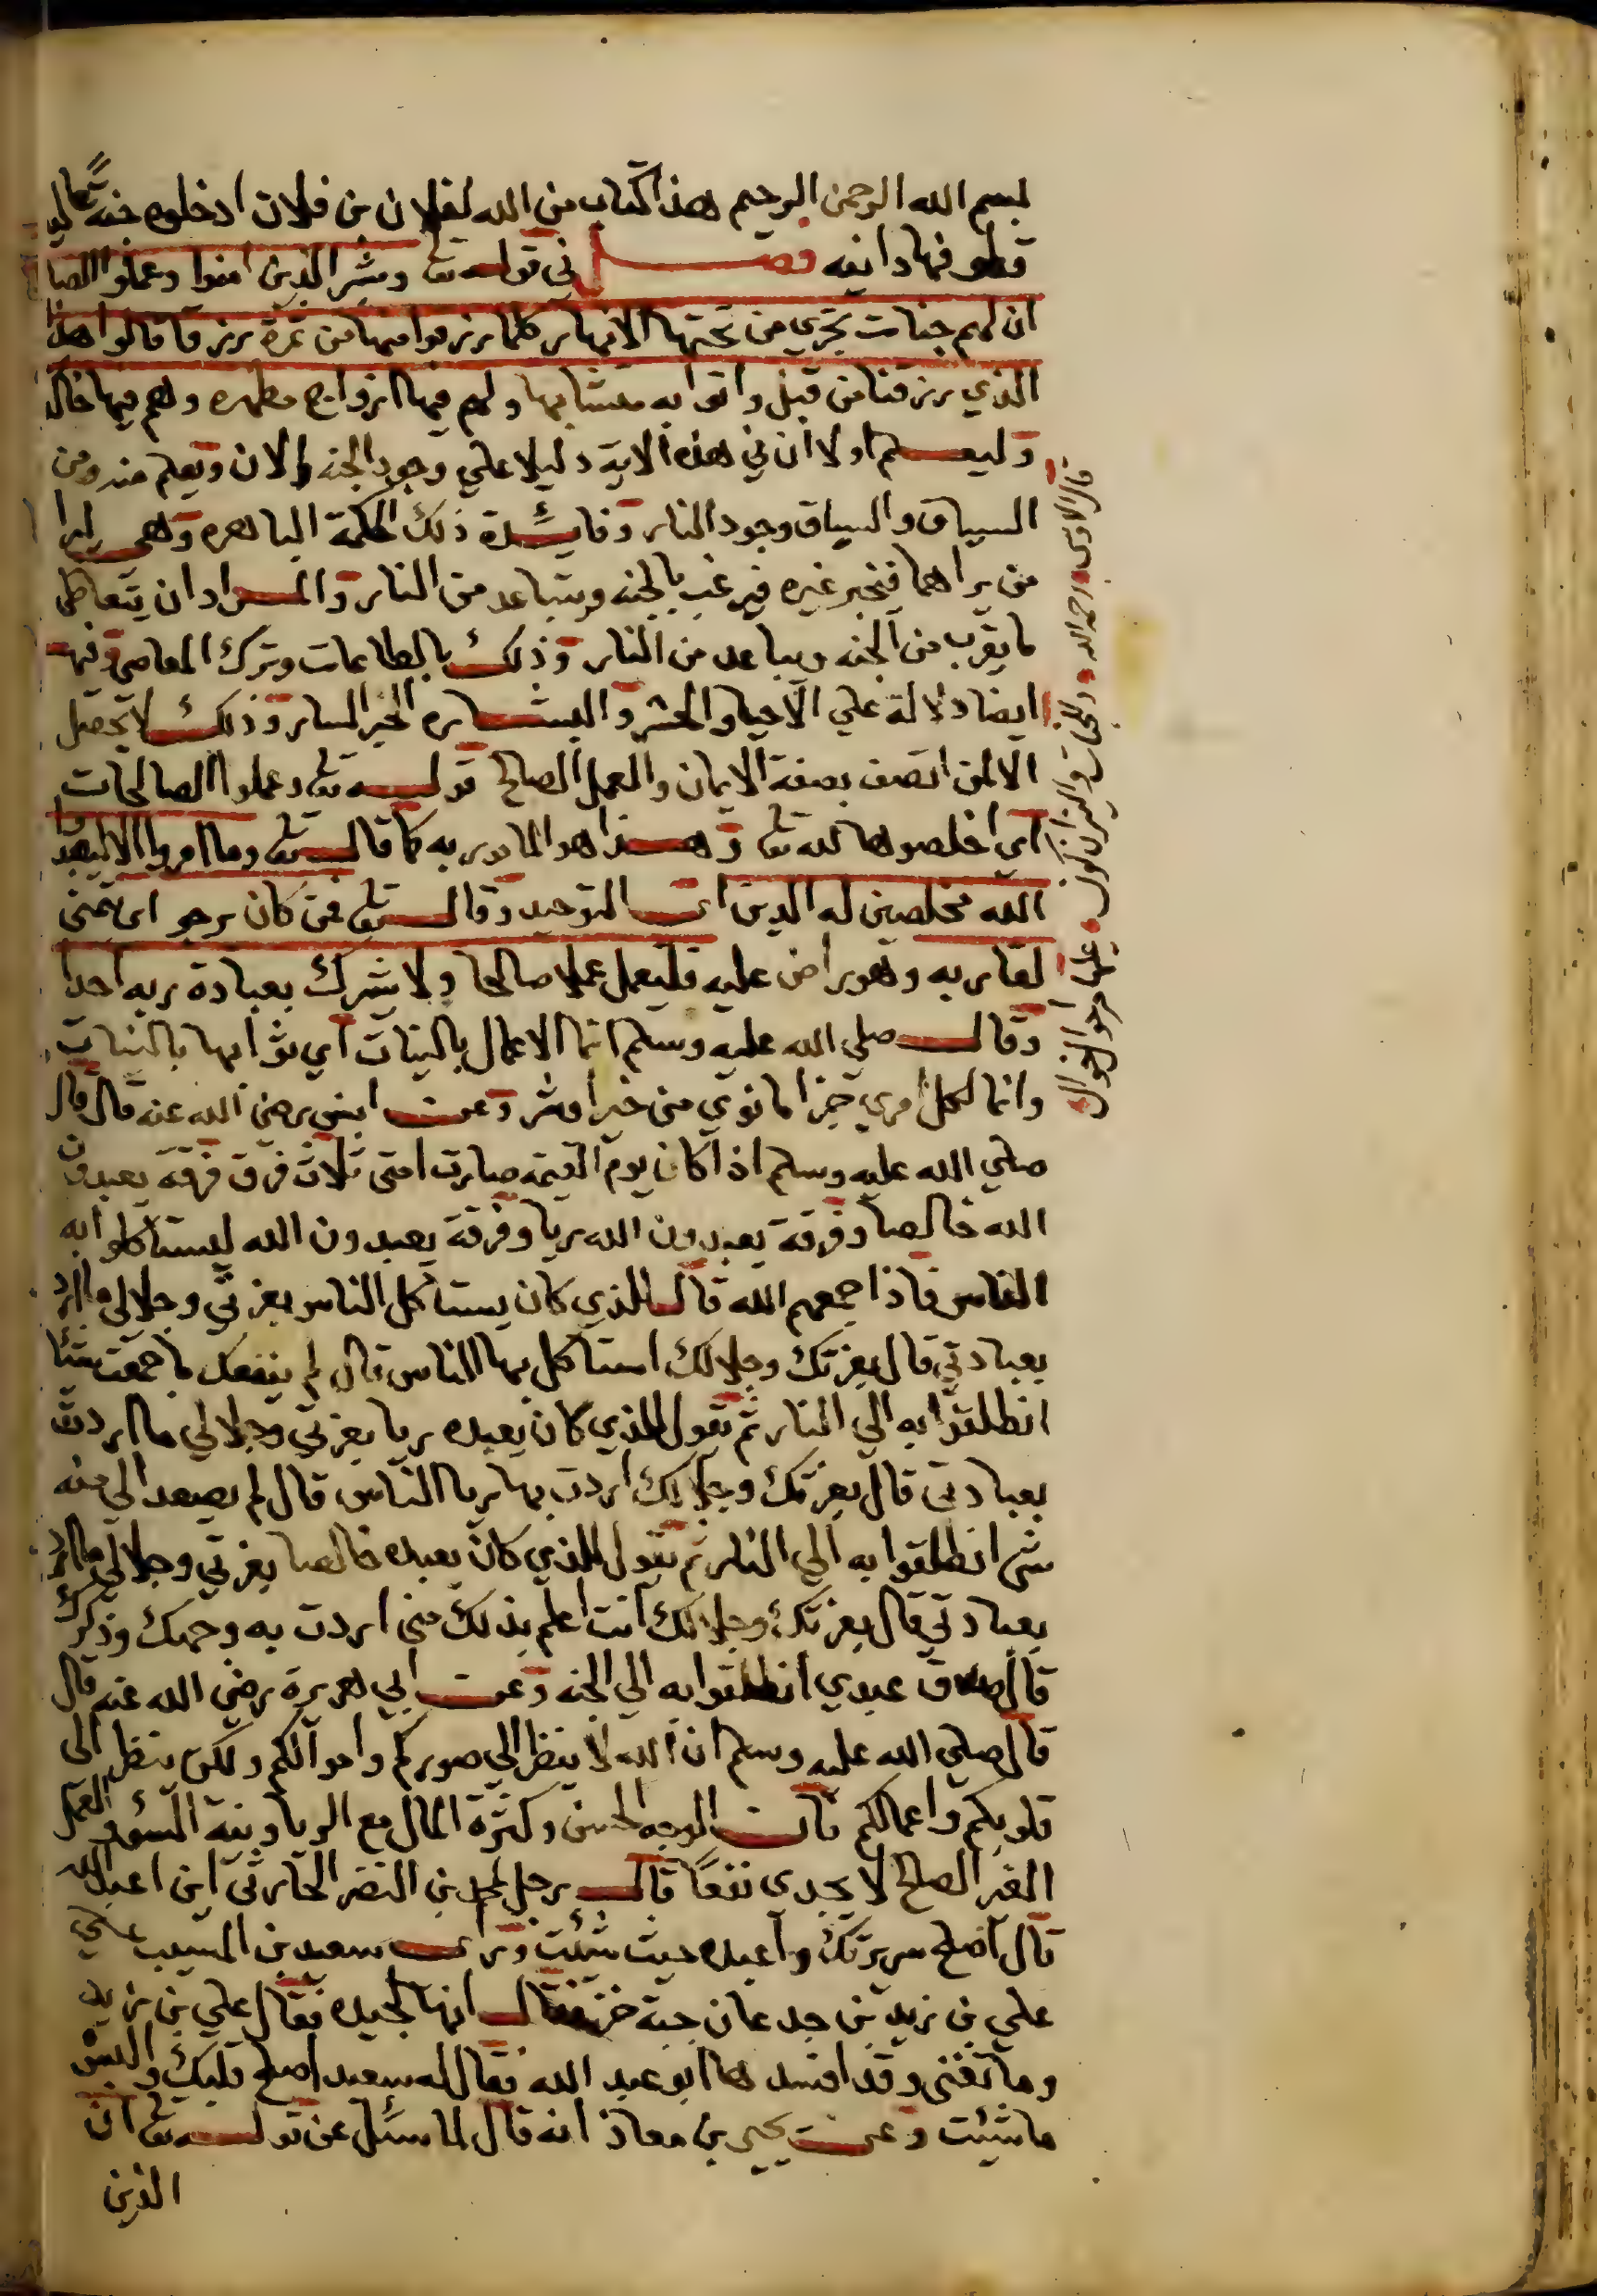 بسم الله الرحمن الرحيم هذا كتاب من الله لفلان بن فلان ادخلوه جنة عاليه
قطوفها دانيه فصل في قوله تع وبشر الذين امنوا وعملوا الصا
ان لهم جنات تجري من تحتها الانهار كلما رزقوا منها من ثمرة رزقا قالوا هذا
الذي رزقنا من قبل واتوا به متشابها ولهم فيها ازواج مطهره وهم فيها خالد
وليعلم اولا ان في هذه الاية دليلا علي وجود الجنه الان ويعلم منه ومن
السياق والسباق وجود النار وفائدة ذلك الحكمة الباهره وهي ليرا
من يراهما فيخبر غيره فيرغب بالجنه ويتباعد من النار والمراد ان يتعاطى
ما يقرب من الجنه ويباعد من النار وذلك بالطاعات وترك المعاصي وفيها
ايضا دلالة علي الاحيا والحشر والبشاره الخبر السار وذلك لا تحصل
الا لمن اتصف بصفة الايمان والعمل الصالح قوله تع وعملوا الصالحات
اي اخلصوها لله تع وهذا هو المامور به كما قال تع وما امروا الا ليعبدوا
الله مخلصين له الدين اي التوحيد وقال تع فمن كان يرجو اي يتمنى
لقا ربه وهو راض عليه فليعمل عملا صالحا ولا يشرك بعبادة ربه احدا
وقال صلي الله عليه وسلم انما الاعمال بالنيات اي ثوابها بالنيات
وانما لكل امري جزا ما نوي من خير او شر وعن انس رضي الله عنه قال قال
صلي الله عليه وسلم اذا كان يوم القيمة صارت امتى ثلاث فرق فرقة يعبدون
الله خالصا وفرقة يعبدون الله ريا وفرقة يعبدون الله ليستاكلوا به
الناس فاذا جمعهم الله قال للذي كان يستاكل الناس بعزتي وجلالي ما ارد
بعبادتي قال بعزتك وجلالك استاكل بها الناس قال لم ينفعك ما جمعت شيئا
انطلقوا به الي النار ثم يقول للذي كان يعبده ريا بعزتي وجلالي ما اردت
بعبادتي قال بعزتك وجلالك اردت بها ريا الناس قال لم يصعد الي منه
شى انطلقوا به الي النار ثم يقول للذي كان يعبده خالصا بعزتي وجلالي ما ارد
بعبادتي قال بعزتك وجلالك انت اعلم بذلك مني اردت به وجهك وذكرك
قال صدق عبدي انطلقوا به الي الجنه وعن ابي هريرة رضي الله عنه قال
قال صلي الله عليه وسلم ان الله لا ينظر الي صوركم واموالكم ولكن ينظر الى
قلوبكم واعمالكم فان الوجه الحسن وكثرة المال مع الريا ونية السؤ والعمل
الغير الصالح لا يجدى نفعا قال رجل لمحمد بن النضر الحارثى اين اعبد الله
قال اصلح سريرتك واعبده حيث شئت وراى سعيد بن المسيب علي
علي بن زيد بن جدعان جبة خز فقال انها لجيده فقال علي بن زيد
وما تغنى وقد افسدها ابو عبد الله فقال له سعيد اصلح قلبك والبس
ما شئت وعن يحيى بن معاذ انه قال لما سئل عن قوله تع ان
الذين
قال الاوسى رحمه الله
علي احوال